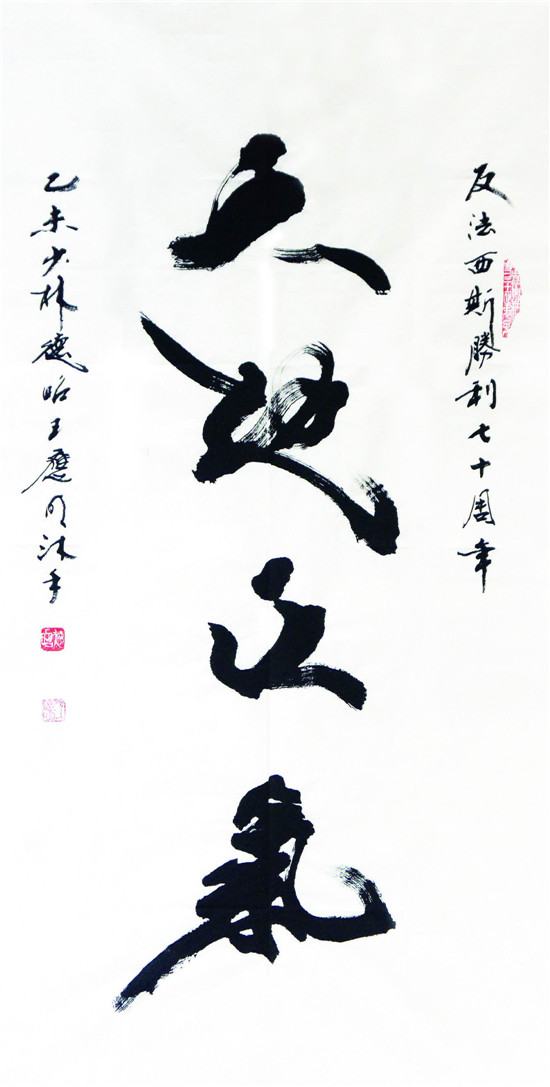 反法西斯勝利七十周年
天地正氣
乙未少林德昭王應明沐手